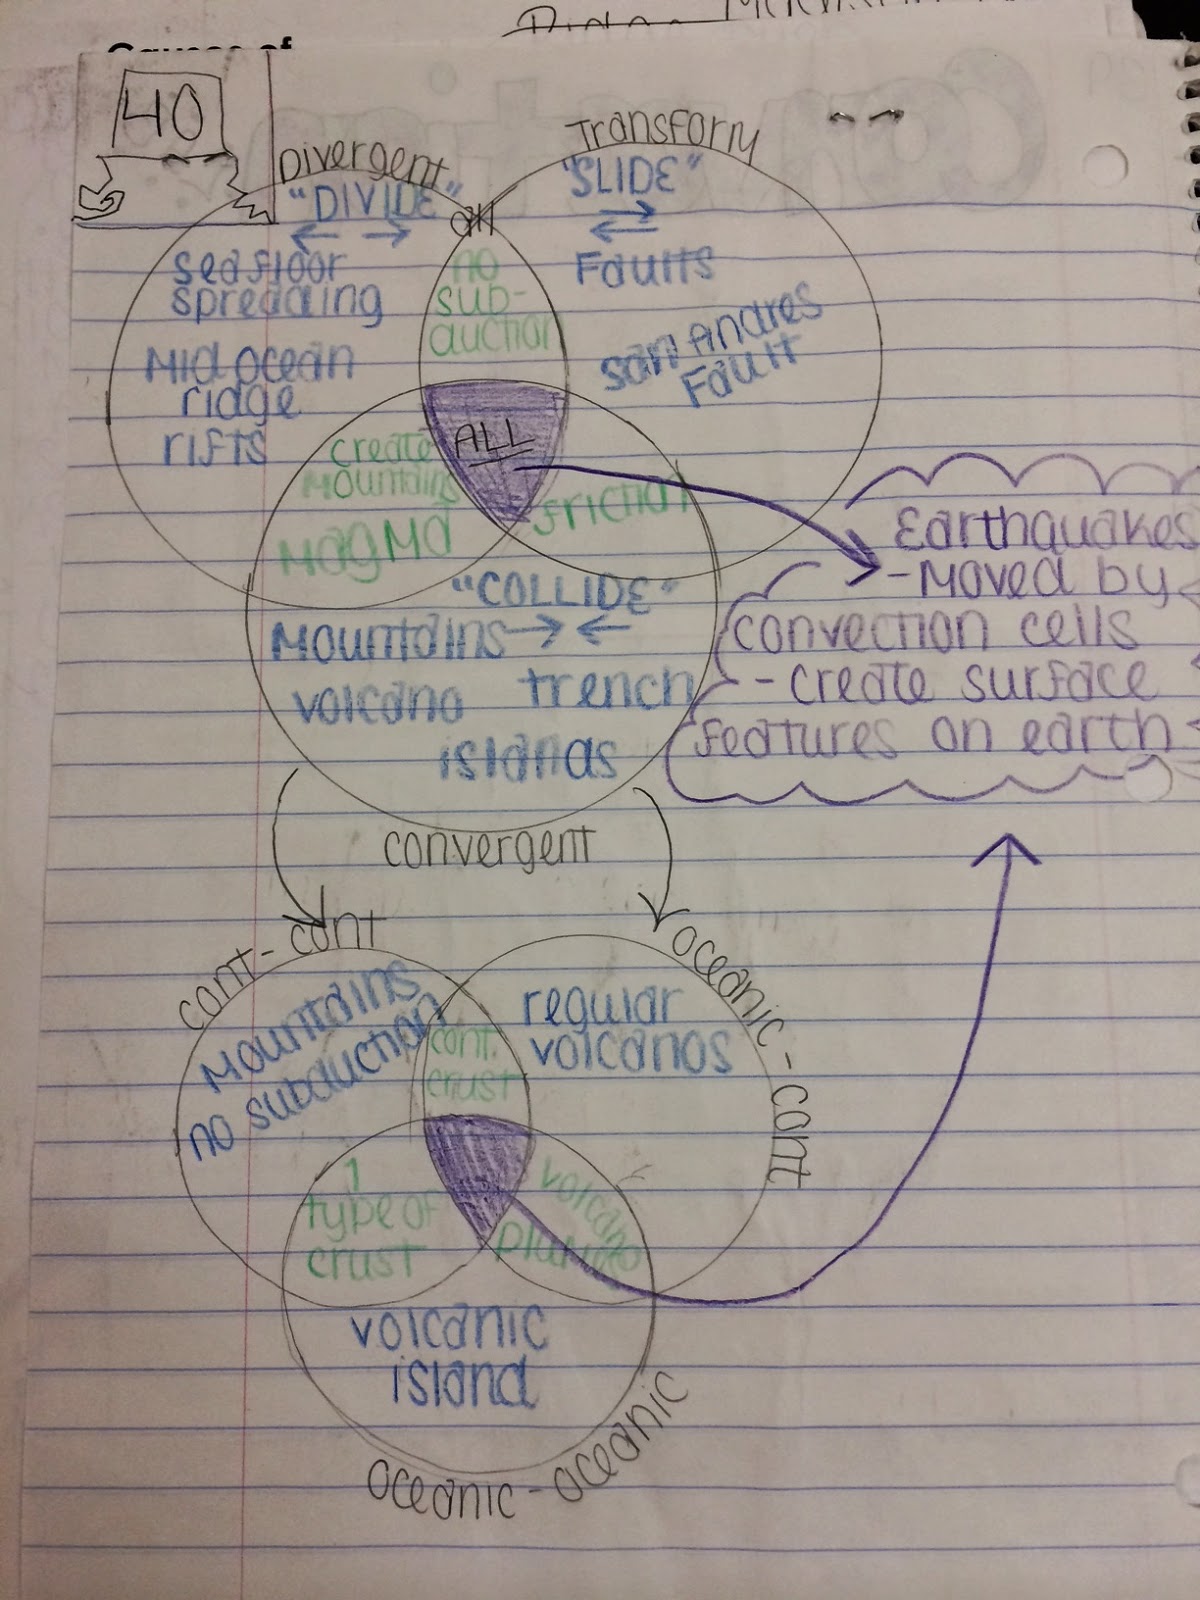 Causes of
40
Divergent
"DIVIDE"
seafloor
spreading
Mid ocean
ridge
rifts
all
no
sub-
duction
Transform
"SLIDE"
Faults
San Andres
Fault
ALL
create
mountains
Magma
friction
"COLLIDE"
Mountains
volcano
trench
islands
convergent
Earthquakes
- Moved by
convection cells
- create surface
features on earth
cont-cont
Mountains
no subduction
cont.
crust
oceanic-cont
regular
volcanos
1
type of
crust
volcano
volcanic
island
oceanic-oceanic